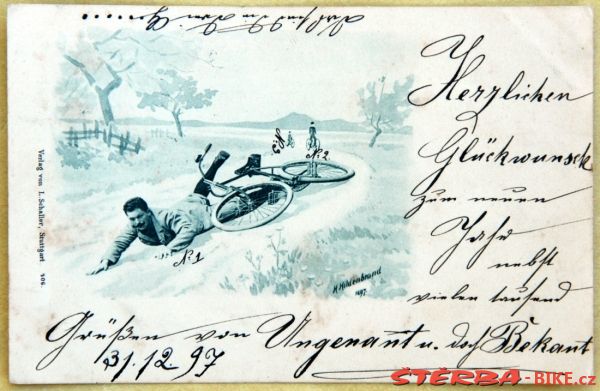 Herzlichen
Glückwunsch
zum neuen
Jahr
nebst
vielen tausend
Grüßen von Ungenannt u. doch Bekant
31.12.97
No. 1
No. 2
No. 3
H. Hildenbrand
1897
Verlag von I. Schaller, Stuttgart
STERBA-BIKE.cz